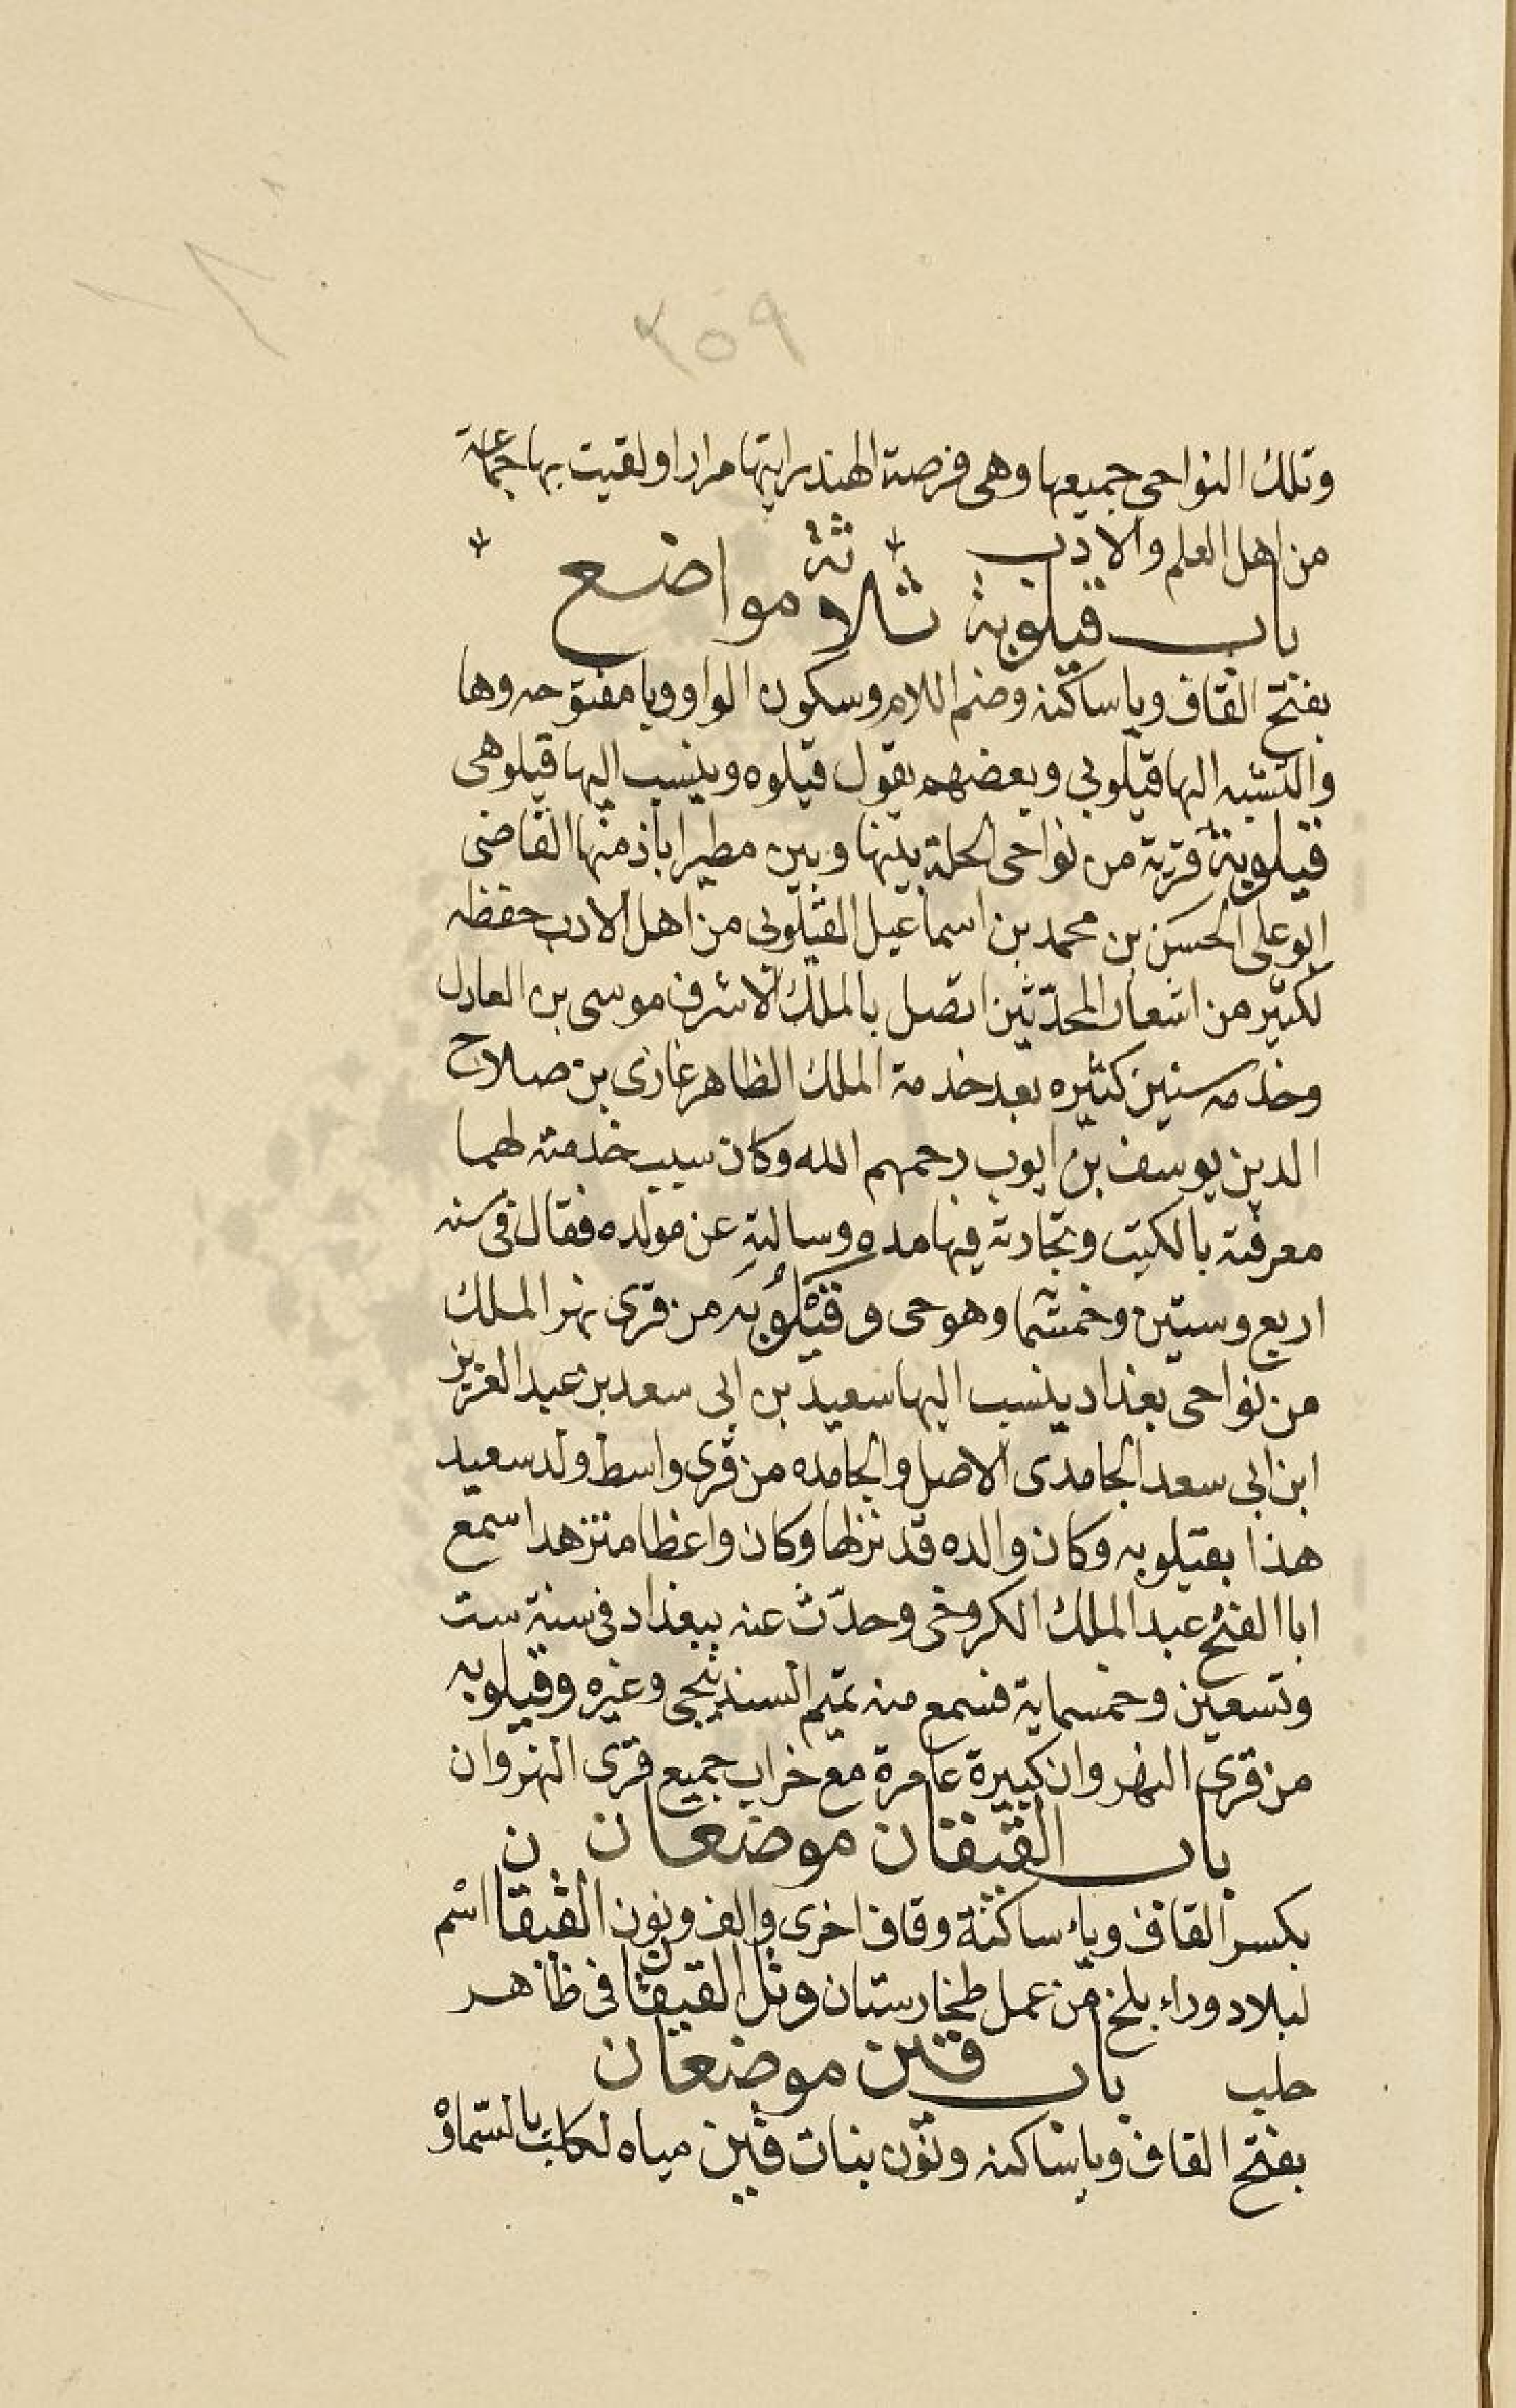 ٣٥٩
وتلك النواحى جميعها وهى فرصة الهند رايتها مرارا ولقيت بها جماعة
من اهل العلم والادب
باب قيلوية ثلاثة مواضع
بفتح القاف ويا ساكنه وضم اللام وسكون الواو ويا مفتوحه وها
والنسبه اليها قيلوبى وبعضهم يقول قيلوه وينسب اليها قيلوهى
قيلوية قرية من نواحى الحلة بينها وبين مطيراباذ منها القاضى
ابو على الحسن بن محمد بن اسماعيل القيلوبى من اهل الادب حفظه
لكثير من اشعار المحدّثين اتصل بالملك الاشرف موسى بن العادل
وخدمه سنين كثيره بعد خدمة الملك الظاهر غازى بن صلاح
الدين يوسف بن ايوب رحمهم الله وكان سبب خدمته لهما
معرفته بالكتب وتجارته فيها مده وسالته عن مولده فقال فى سنه
اربع وستين وخمسما وهو حى وقَيْلُوبَه من قرى نهر الملك
من نواحى بغداد ينسب اليها سعيد بن ابى سعد بن عبد العزيز
ابن ابى سعد الجامدى الاصل والجامده من قرى واسط ولد سعيد
هذا بقيلوبه وكان والده قد نزلها وكان واعظا متزهدا سمع
ابا الفتح عبد الملك الكروخى وحدّث عنه ببغداد فى سنة ست
وتسعين وخمسماية فسمع منه تميم البندنيجى وغيره وقيلوبه
من قرى النهروان كبيرة عامرة مع خراب جميع قرى النهروان
باب القيقان موضعان ن
بكسر القاف وياء ساكنة وقاف اخرى والف ونون القيقان اسم
لبلاد وراء بلخ من عمل طخارستان وتل القيقان فى ظاهر
حلب باب قين موضعان
بفتح القاف ويا ساكنه ونون بنات قين مياه لكلب بالسّماوة